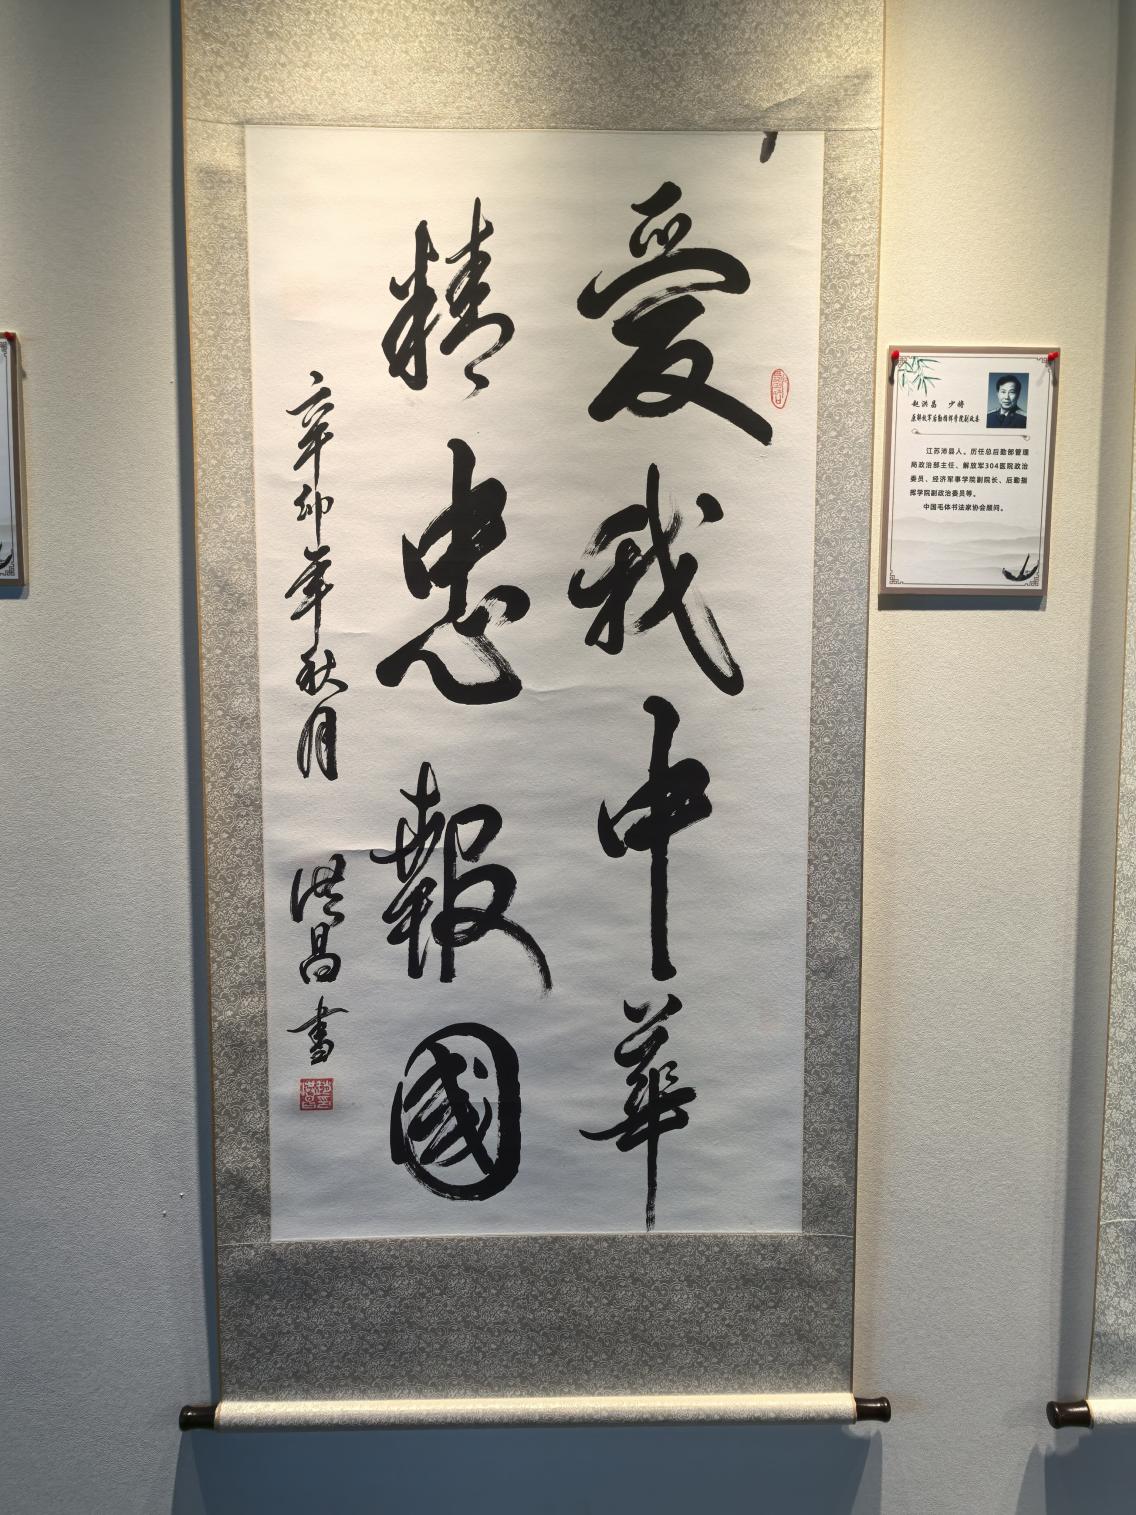 爱我中华
精忠報國
辛卯年秋月 洪昌書
赵洪昌 少将
原解放军后勤指挥学院副政委
江苏沛县人。历任总后勤部管理
局政治部主任、解放军304医院政治
委员、经济军事学院副院长、后勤指
挥学院副政治委员等。
中国毛体书法家协会顾问。